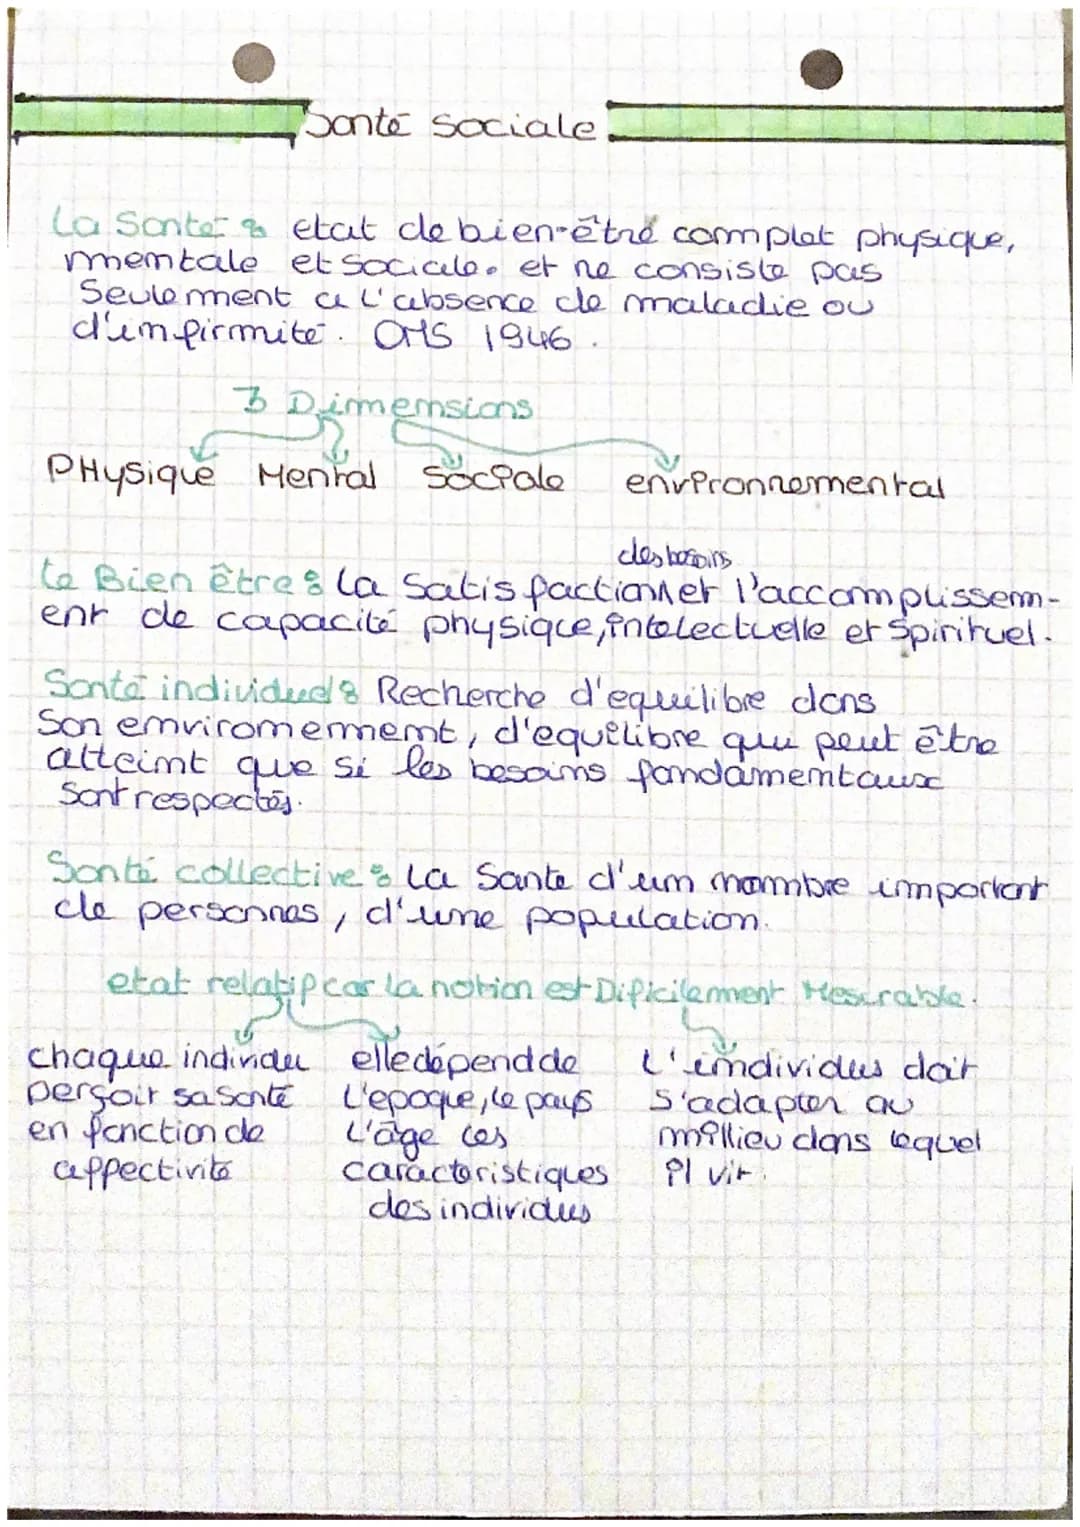 Santé sociale
La Santé : etat de bien-être complet physique,
mentale et sociale. et ne consiste pas
Seulement a L'absence de maladie ou
d'infirmité. OMS 1946.
3 Dimensions
PHysique Mental Sociale environnemental
des besoins
Le Bien être : La Satisfaction et l'accomplissem-
ent de capacité physique, intelectuelle et Spirituel.
Santé individuel : Recherche d'equilibre dans
Son enviromement, d'equilibre qui peut être
atteint que si les besoins fondamentaux
Sont respectés.
Santé collective : La Sante d'un nombre important
de personnes, d'une population.
etat relatif car la notion est Dificilement Mesurable.
chaque individu elle dépend de L'individus doit
perçoit sa santé L'epoque, le pays S'adapter au
en fonction de L'âge ces millieu dans lequel
affectivité caractoristiques il vit.
des individus